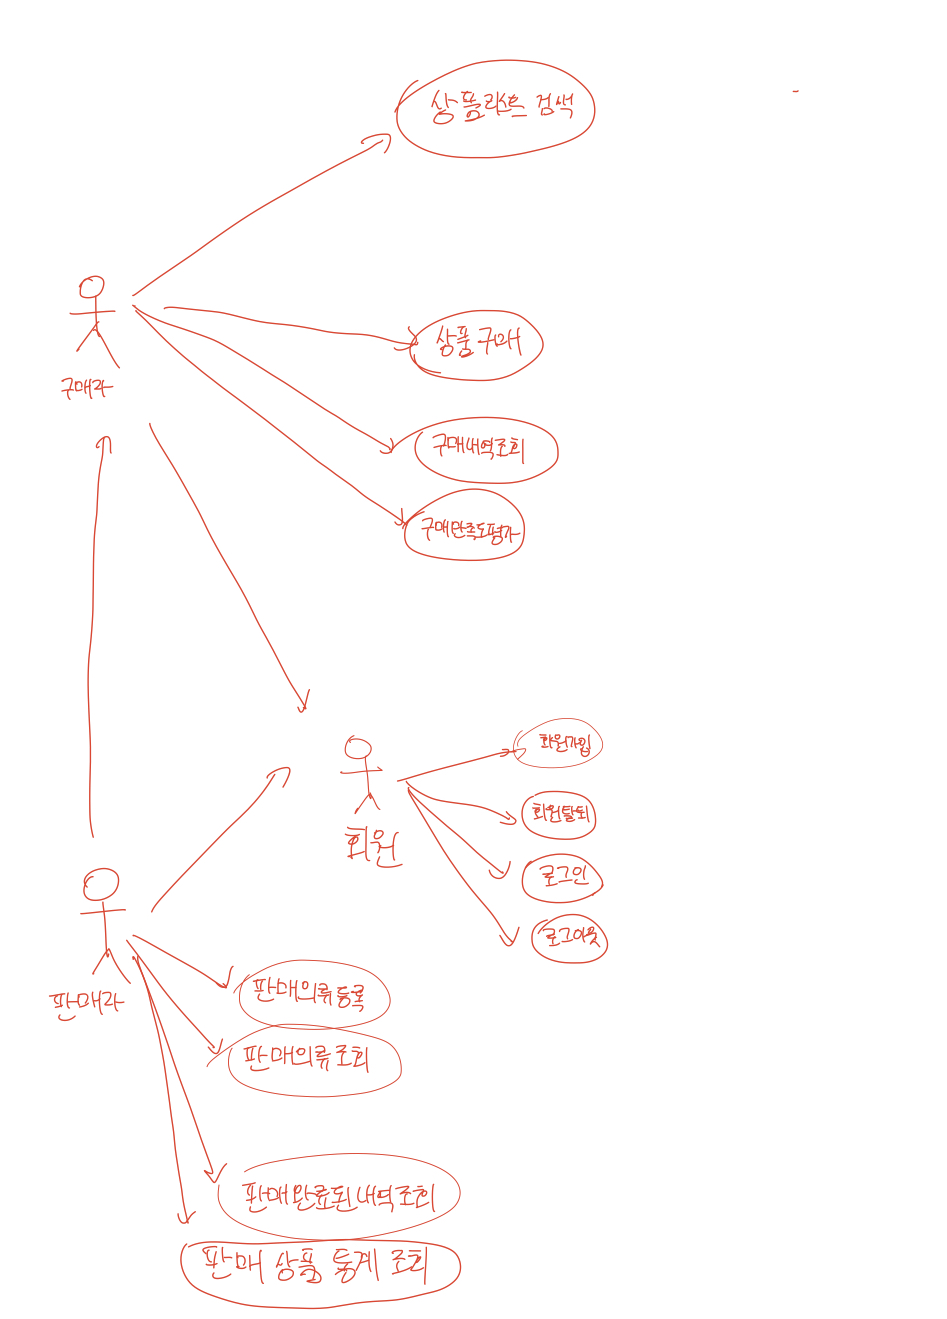 상품리스트 검색
상품 구매
구매자
구매내역조회
구매만족도평가
회원가입
회원탈퇴
회원
로그인
로그아웃
판매자
판매의류등록
판매의류조회
판매완료된내역조회
판매 상품 통계 조회